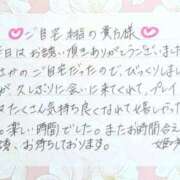 ご自宅 本指の貴方様
日はお誘い頂きありがとうございま
さかのご自宅だったので、びっくりしまし
久しぶりに会いに来てくれて、プレイ
はたくさん気持ち良くなれて嬉しかった
楽しい時間でした。またお時間合え
誘、お待ちしております。